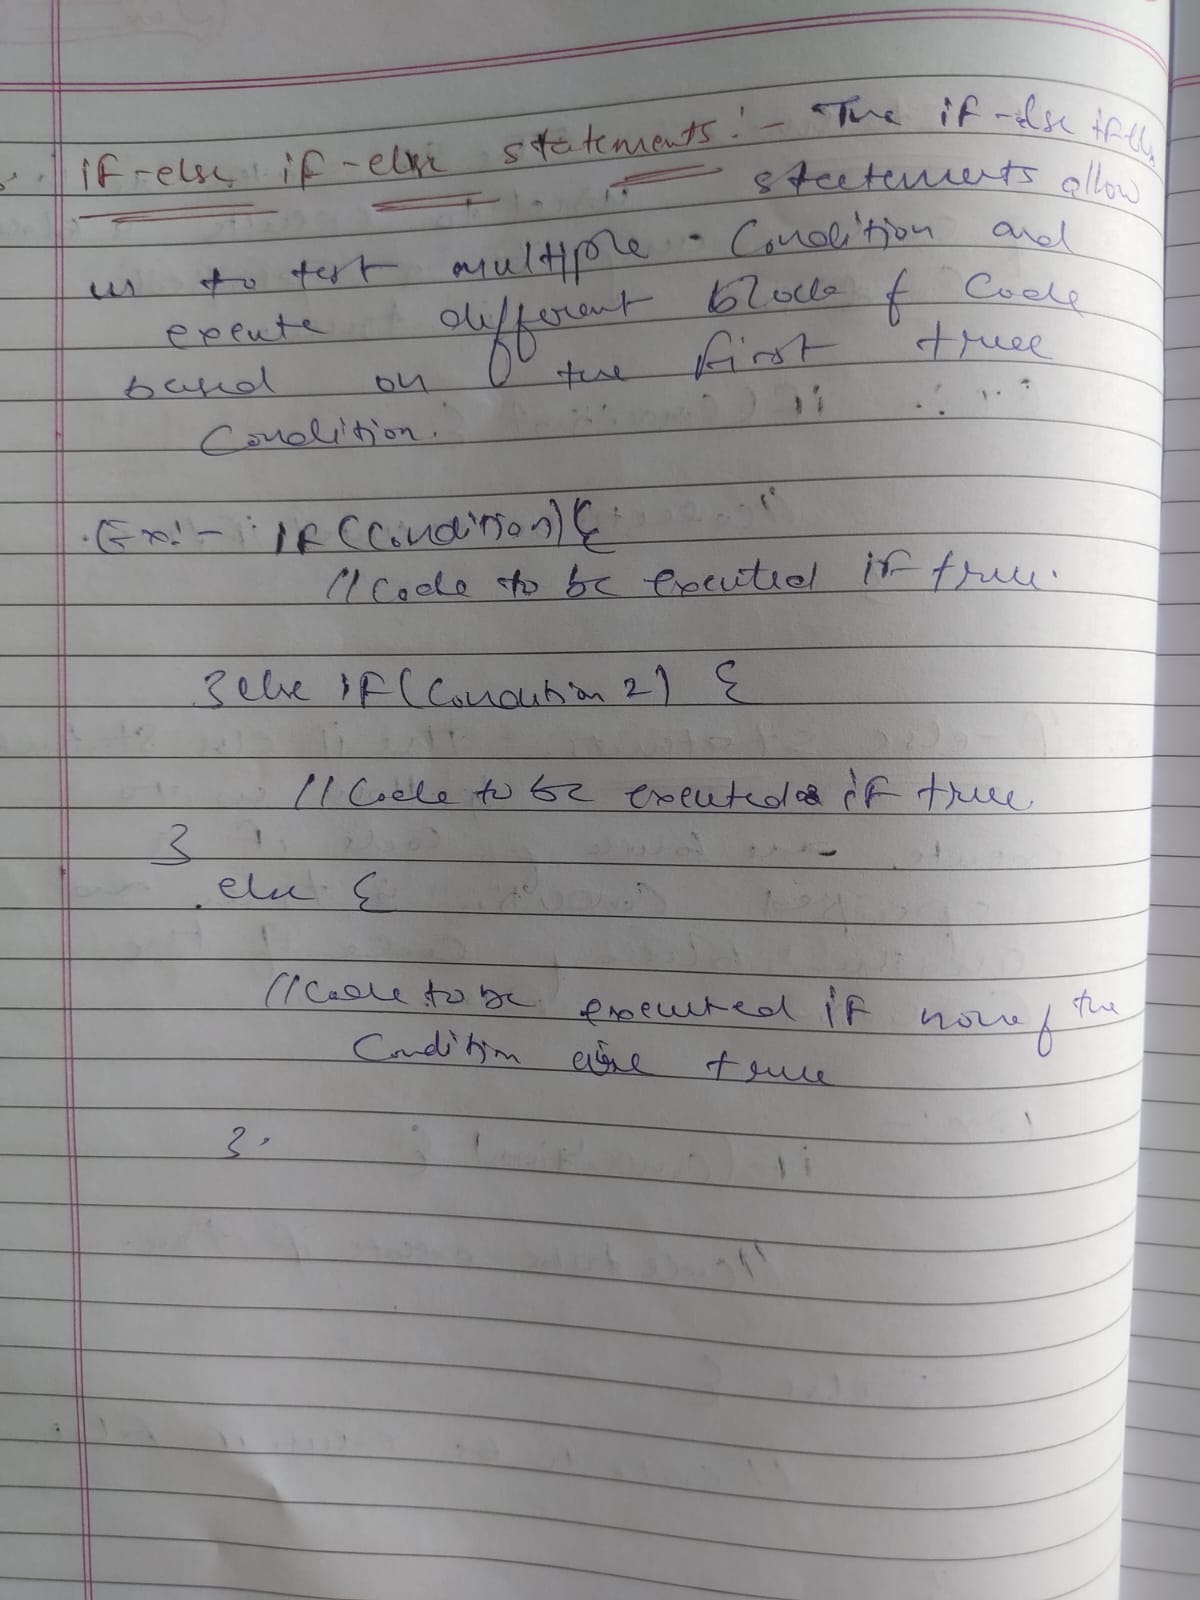 if-else if-else statements:- The if-else if else
statements allow
us to test multiple condition and
execute different block of code
based on the first true
condition.
Ex:- if (condition) {
// code to be executed if true.
} else if (condition 2) {
// code to be executed if true
}
else {
// code to be executed if none of the
condition are true
}.